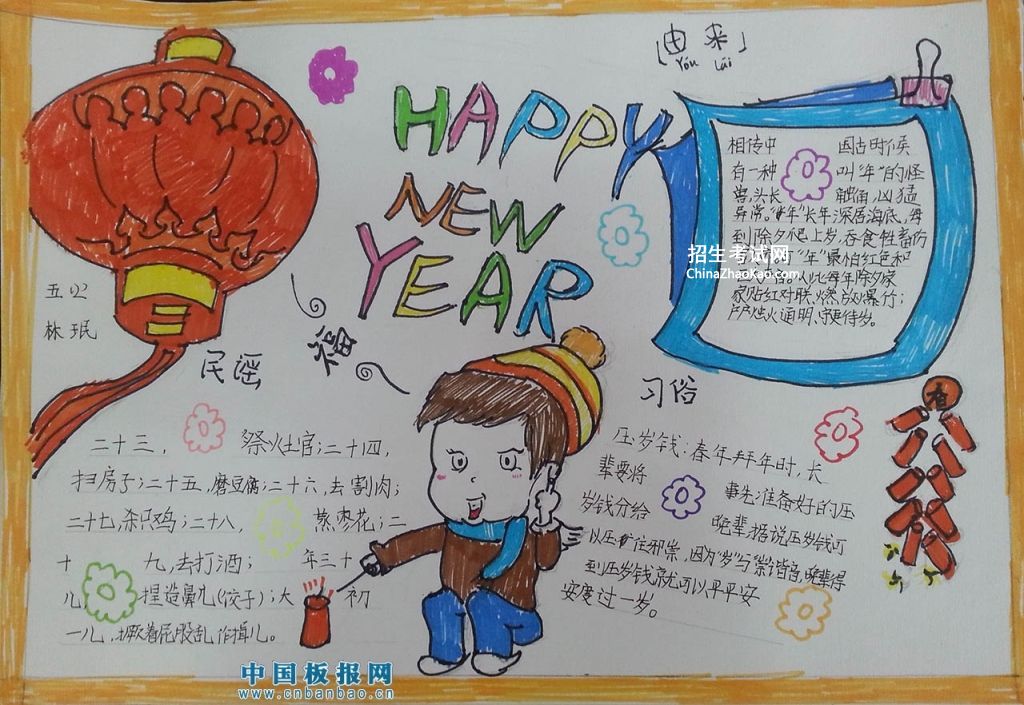 「由来」
Yóu Lái
HAPPY
NEW
YEAR
相传中国古时候
有一种叫"年"的怪
兽,头长触角,凶猛
异常。"年"长年深居海底,每
到除夕爬上岁,吞食牲畜伤
"年"最怕红色和
从此每年除夕家
家贴红对联、燃放爆竹;
户户烛火通明、守更待岁。
招生考试网
ChinaZhaoKao.com
五
林珉
福
民谣
二十三,祭灶官;二十四,
扫房子;二十五,磨豆腐;二十六,去割肉;
二十七,杀只鸡;二十八,蒸枣花;二
十九,去打酒;年三十
儿,捏造鼻九(饺子);大初
一儿,撅着屁股乱作揖儿。
习俗
压岁钱:春年拜年时,长
辈要将事先准备好的压
岁钱分给晚辈,据说压岁钱可
以压住邪祟,因为"岁"与"祟"谐音,晚辈得
到压岁钱就可以平平安
安度过一岁。
春
中国板报网
www.cnbanbao.cn